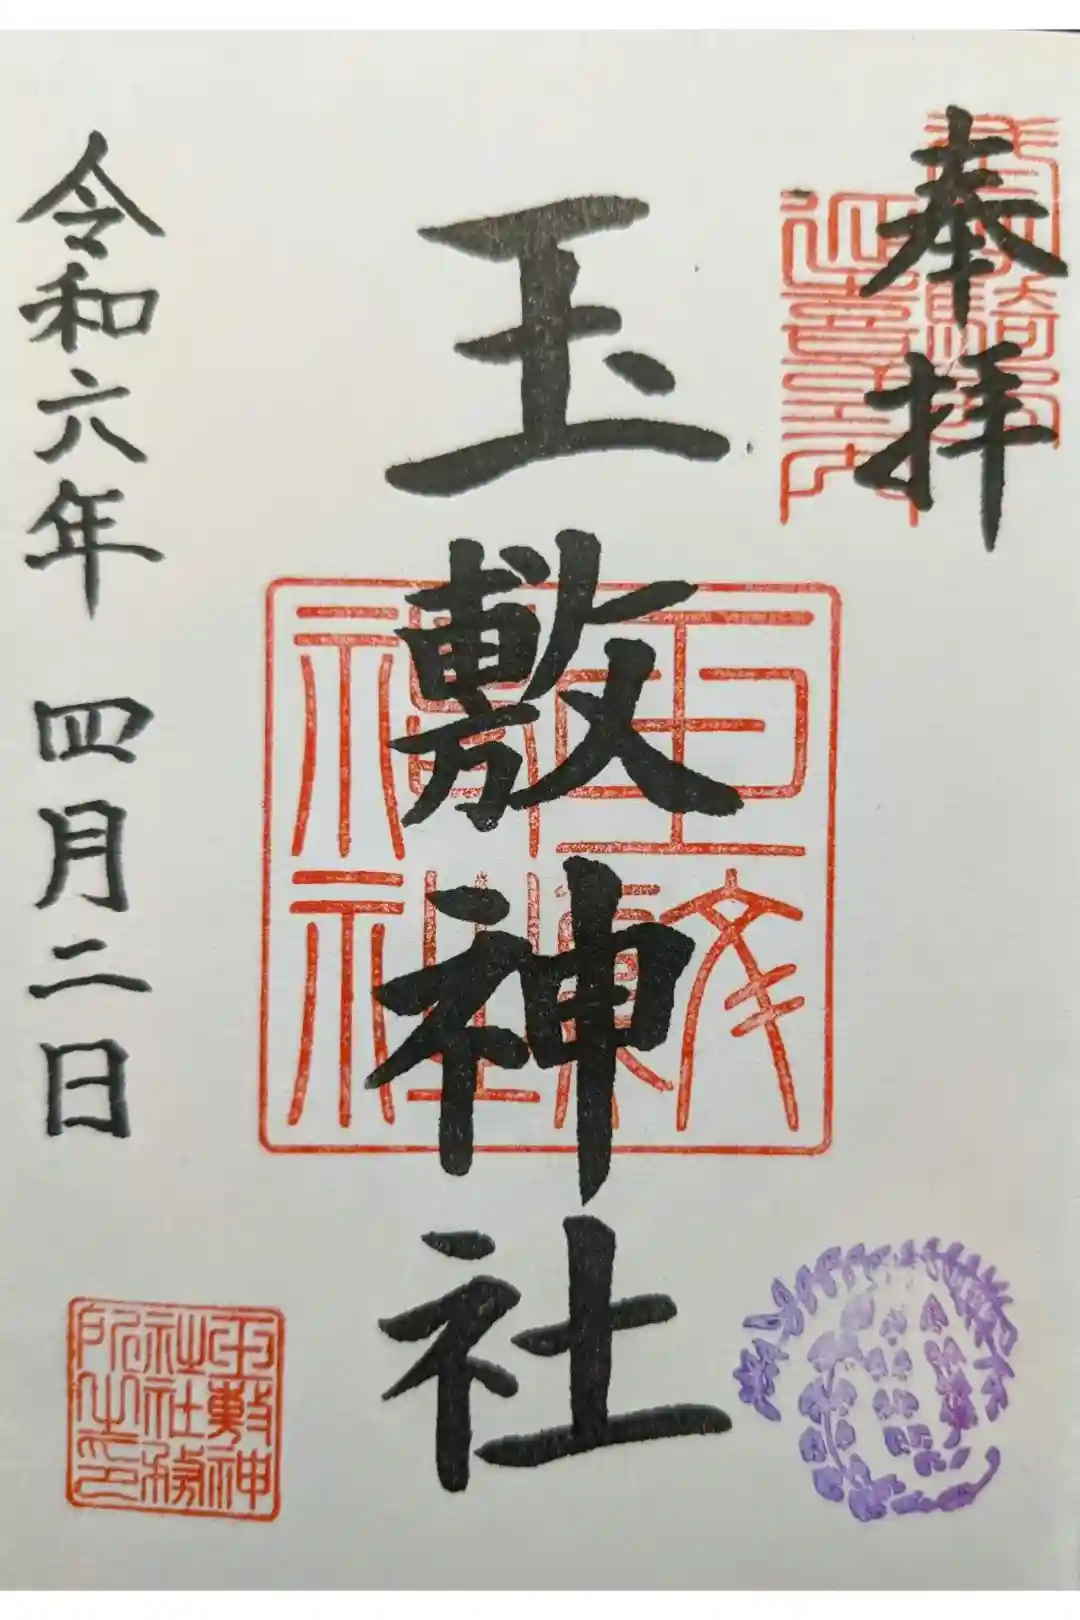 奉拝
延喜式内
玉敷神社
玉敷神社
令和六年 四月二日
玉敷神
社社務
所之印